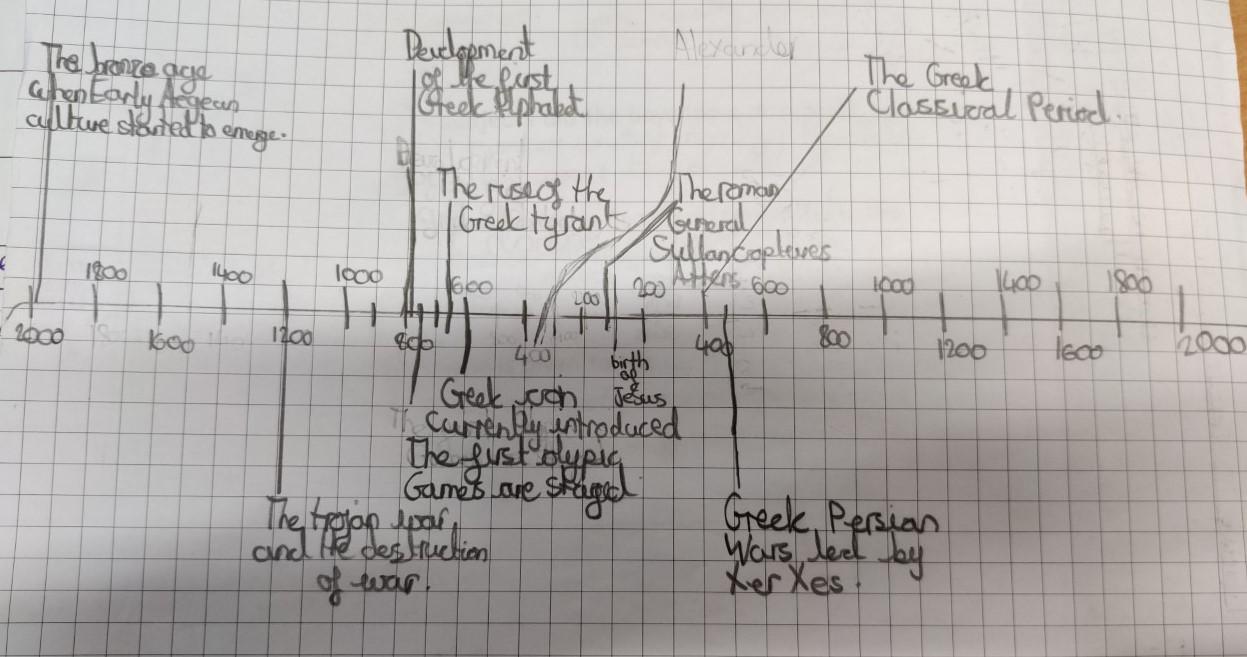 The bronze age
when Early Aegean
culture started to emerge.
Development
of the first
Greek Alphabet
Alexander
The Greek
Classical Period.
The rise of the
Greek tyrant
The roman
General
Sullan captures
Athens
1800
1400
1000
600
200
200
600
1000
1400
1800
2000
1600
1200
800
400
birth
of
Jesus
400
800
1200
1600
2000
Geek coin
Currently introduced
The first olypic
Games are staged
The trojan war,
and the destruction
of war.
Greek Persian
Wars led by
XerXes.